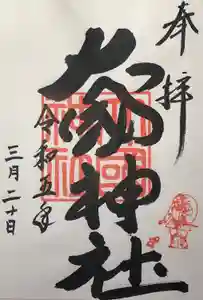 奉拝
神社
令和五年
三月二十日